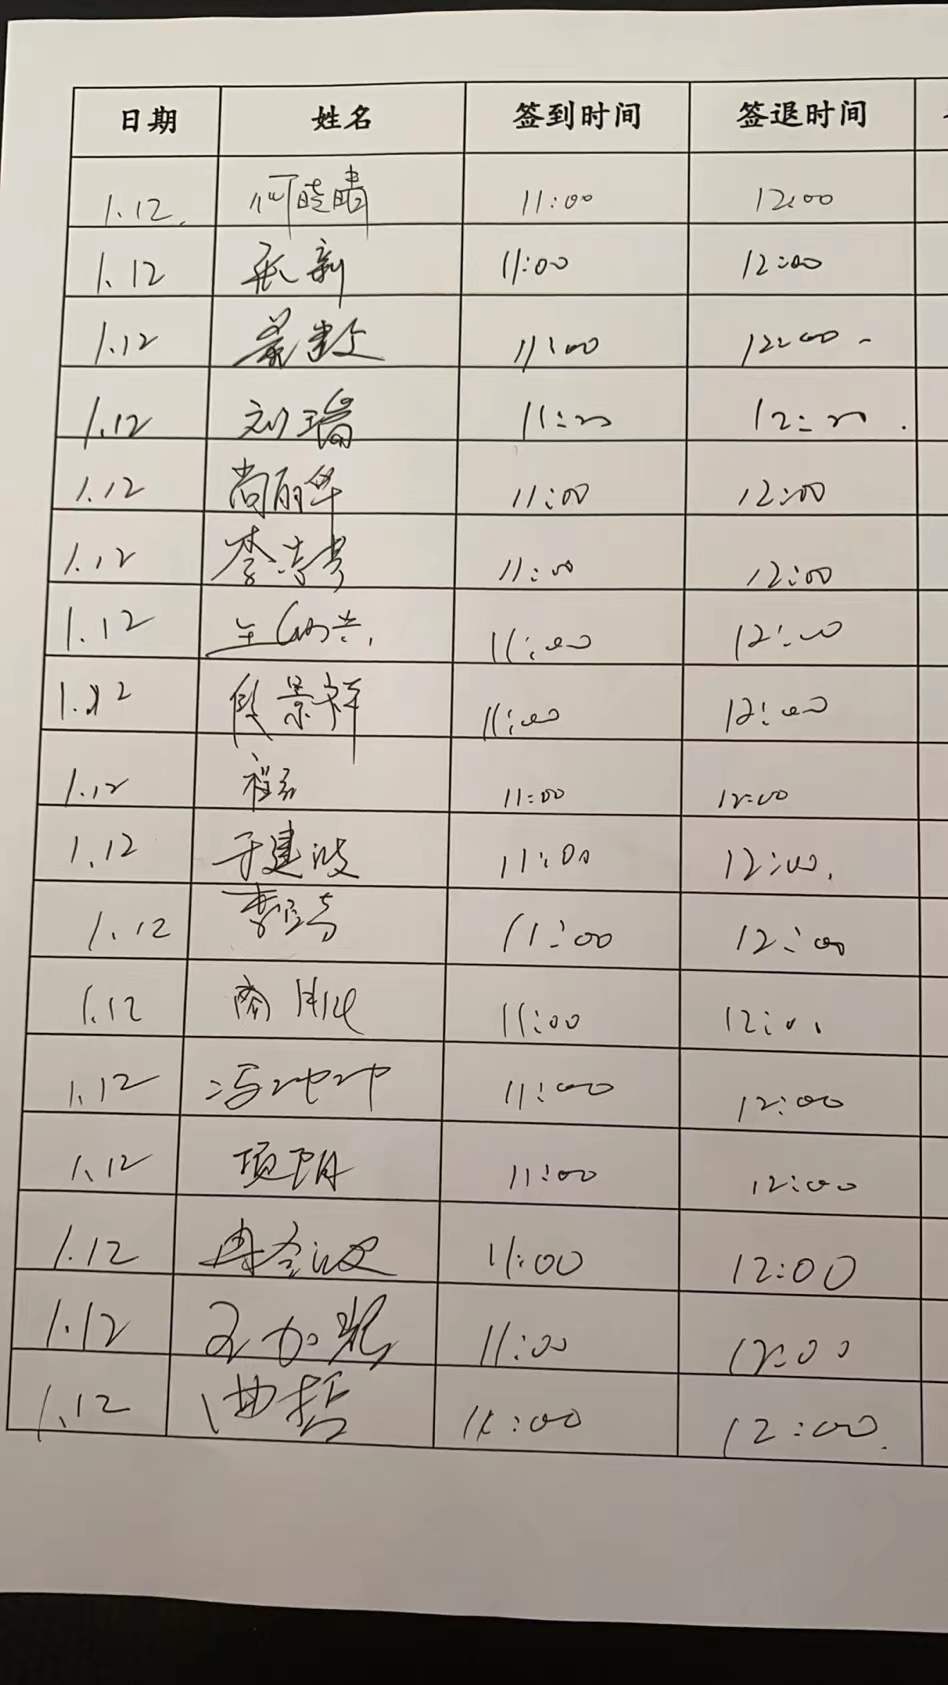 日期 姓名 签到时间 签退时间
1.12. 何晓晴 11:00 12:00
1.12 张新 11:00 12:00
1.12 11:00 12:00
1.12 刘瑞 11:00 12:00.
1.12 尚丽华 11:00 12:00
1.12 李 11:00 12:00
1.12 11:00 12:00
1.12 段景祥 11:00 12:00
1.12 11:00 12:00
1.12 于建波 11:00 12:00.
1.12 11:00 12:00
1.12 11:00 12:00
1.12 冯冲冲 11:00 12:00
1.12 项明 11:00 12:00
1.12 11:00 12:00
1.12 11:00 12:00
1.12 曲哲 11:00 12:00.